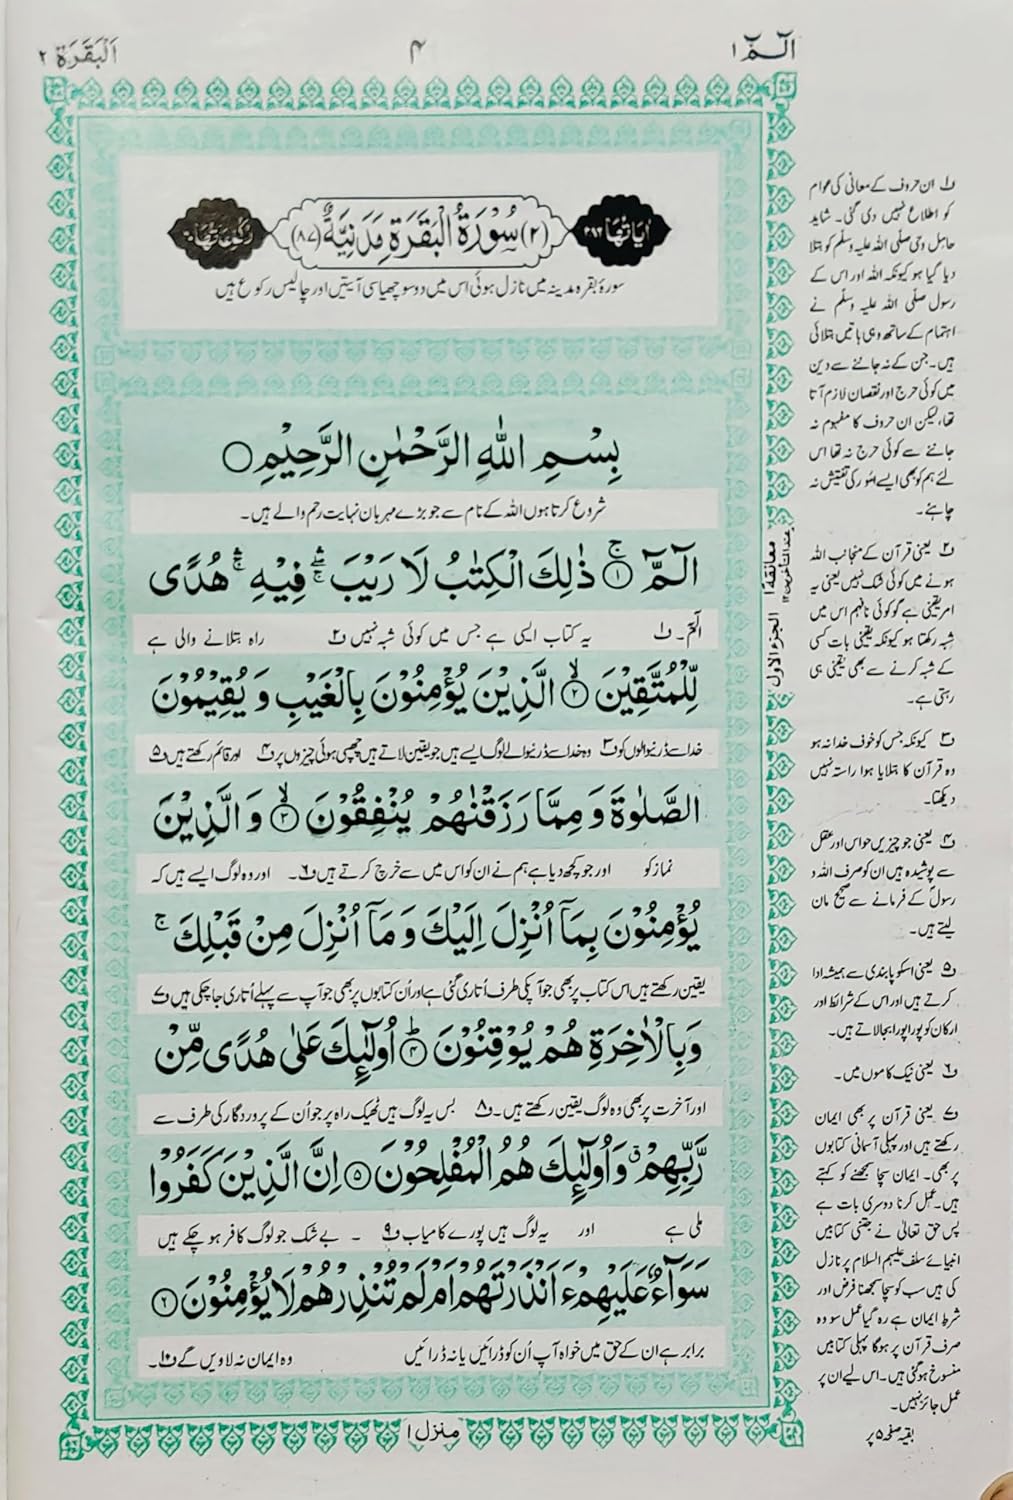 الٓمّٓ ١
۴
اَلْبَقَرَة ٢
اٰیَاتُهَا ٢٨٦
(٢) سُوْرَةُ الْبَقَرَةِ مَدَنِیَّةٌ (٨٧)
رُكُوْعَاتُهَا ٤٠
سورۂ بقرہ مدینہ میں نازل ہوئی اس میں دو سو چھیاسی آیتیں اور چالیس رکوع ہیں
بِسْمِ اللّٰهِ الرَّحْمٰنِ الرَّحِیْمِ ○
شروع کرتا ہوں اللہ کے نام سے جو بڑے مہربان نہایت رحم والے ہیں۔
الٓمّٓ ۚ﴿١﴾ ذٰلِكَ الْكِتٰبُ لَا رَیْبَ ۛۚ فِیْهِ ۛۚ هُدًی
الٓمٓ۔ ف۱ یہ کتاب ایسی ہے جس میں کوئی شبہ نہیں ف۲ راہ بتلانے والی ہے
لِّلْمُتَّقِیْنَ ۙ﴿٢﴾ الَّذِیْنَ یُؤْمِنُوْنَ بِالْغَیْبِ وَ یُقِیْمُوْنَ
خدا سے ڈرنیوالوں کو ف۳ وہ خدا سے ڈرنیوالے لوگ ایسے ہیں جو یقین لاتے ہیں چھپی ہوئی چیزوں پر ف۴ اور قائم رکھتے ہیں ف۵
الصَّلٰوةَ وَ مِمَّا رَزَقْنٰهُمْ یُنْفِقُوْنَ ۙ﴿٣﴾ وَ الَّذِیْنَ
نماز کو اور جو کچھ دیا ہے ہم نے ان کو اس میں سے خرچ کرتے ہیں ف۶۔ اور وہ لوگ ایسے ہیں کہ
یُؤْمِنُوْنَ بِمَاۤ اُنْزِلَ اِلَیْكَ وَ مَاۤ اُنْزِلَ مِنْ قَبْلِكَ ۚ
یقین رکھتے ہیں اس کتاب پر بھی جو آپ کی طرف اُتاری گئی ہے اور اُن کتابوں پر بھی جو آپ سے پہلے اُتاری جا چکی ہیں ف۷
وَ بِالْاٰخِرَةِ هُمْ یُوْقِنُوْنَ ؕ﴿٤﴾ اُولٰٓئِكَ عَلٰی هُدًی مِّنْ
اور آخرت پر بھی وہ لوگ یقین رکھتے ہیں۔ ف۸ بس یہ لوگ ہیں ٹھیک راہ پر جو اُن کے پروردگار کی طرف سے
رَّبِّهِمْ ۗ وَ اُولٰٓئِكَ هُمُ الْمُفْلِحُوْنَ ﴿٥﴾ اِنَّ الَّذِیْنَ كَفَرُوْا
ملی ہے اور یہ لوگ ہیں پورے کامیاب ف۹ ۔ بے شک جو لوگ کافر ہو چکے ہیں
سَوَآءٌ عَلَیْهِمْ ءَاَنْذَرْتَهُمْ اَمْ لَمْ تُنْذِرْهُمْ لَا یُؤْمِنُوْنَ ﴿٦﴾
برابر ہے ان کے حق میں خواہ آپ اُن کو ڈرائیں یا نہ ڈرائیں وہ ایمان نہ لاویں گے ف۱۰۔
منزل ١
معانقة ١
عند المتأخرین ١٢
الجزء الاول
ف۱ ان حروف کے معانی کی عوام
کو اطلاع نہیں دی گئی۔ شاید
حامل وحی صلّی اللہ علیہ وسلّم کو بتلا
دیا گیا ہو کیونکہ اللہ اور اس کے
رسول صلّی اللہ علیہ وسلّم نے
اہتمام کے ساتھ وہی باتیں بتلائی
ہیں۔ جن کے نہ جاننے سے دین
میں کوئی حرج اور نقصان لازم آتا
تھا، لیکن ان حروف کا مفہوم نہ
جاننے سے کوئی حرج نہ تھا اس
لئے ہم کو بھی ایسے اُمور کی تفتیش نہ
چاہئے۔
ف۲ یعنی قرآن کے منجانب اللہ
ہونے میں کوئی شک نہیں یعنی یہ
امر یقینی ہے گو کوئی نافہم اس میں
شبہ رکھتا ہو کیونکہ یقینی بات کسی
کے شبہ کرنے سے بھی یقینی ہی
رہتی ہے۔
ف۳ کیونکہ جس کو خوف خدا نہ ہو
وہ قرآن کا بتلایا ہوا راستہ نہیں
دیکھتا۔
ف۴ یعنی جو چیزیں حواس اور عقل
سے پوشیدہ ہیں ان کو صرف اللہ و
رسولؐ کے فرمانے سے صحیح مان
لیتے ہیں۔
ف۵ یعنی اسکو پابندی سے ہمیشہ ادا
کرتے ہیں اور اس کے شرائط اور
ارکان کو پورا پورا بجا لاتے ہیں۔
ف۶ یعنی نیک کاموں میں۔
ف۷ یعنی قرآن پر بھی ایمان
رکھتے ہیں اور پہلی آسمانی کتابوں
پر بھی۔ ایمان سچا سمجھنے کو کہتے
ہیں۔ عمل کرنا دوسری بات ہے
پس حق تعالیٰ نے جتنی کتابیں
انبیائے سلف علیہم السلام پر نازل
کی ہیں سب کو سچا سمجھنا فرض اور
شرطِ ایمان ہے رہ گیا عمل سو وہ
صرف قرآن پر ہوگا پہلی کتابیں
منسوخ ہو گئی ہیں۔ اس لیے ان پر
عمل جائز نہیں۔
بقیہ صفحہ ۵ پر